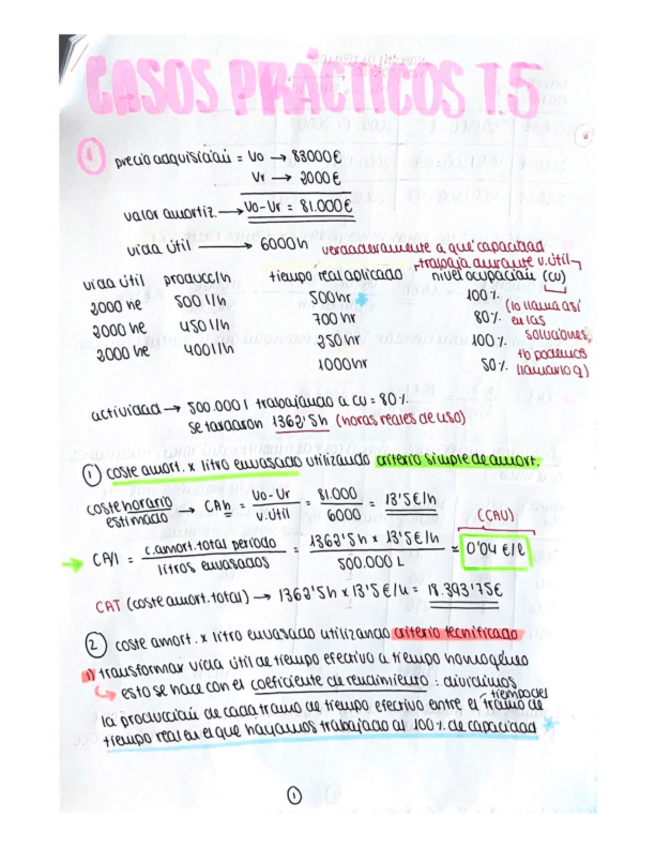 CASOS PRÁCTICOS T.5
1 precio adquisición = Vo → 83000€
Vr → 2000€
valor amortiz. → Vo-Vr = 81.000€
vida útil → 6000h verdaderamente a que capacidad
trabaja durante v.útil
vida útil producc/h tiempo real aplicado nivel ocupación (cu)
2000 he 500 l/h 500hr 100%
2000 he 450 l/h 700hr 80%
2000 he 400 l/h 250hr 100%
1000hr 50%
(lo llama así
en las
soluciones,
tb podemos
llamarlo q)
actividad → 500.000 l trabajando a cu = 80%.
se tardaron 1362'5h (horas reales de uso)
1 coste amort. x litro envasado utilizando criterio simple de amort.
coste horario estimado → CAh = Vo-Vr / v.útil = 81.000 / 6000 = 13'5€/h
(CAU)
→ CA/l = c.amort.total periodo / litros envasados = 1362'5h x 13'5€/h / 500.000 L = 0'04 €/l
CAT (coste amort. total) → 1362'5h x 13'5€/u = 18.393'75€
2 coste amort. x litro envasado utilizando criterio tecnificado
1) transformar vida útil de tiempo efectivo a tiempo homogéneo
→ esto se hace con el coeficiente de rendimiento : dividimos
la producción de cada tramo de tiempo efectivo entre el tramo de
tiempo del
tiempo real en el que hayamos trabajado al 100% de capacidad
1